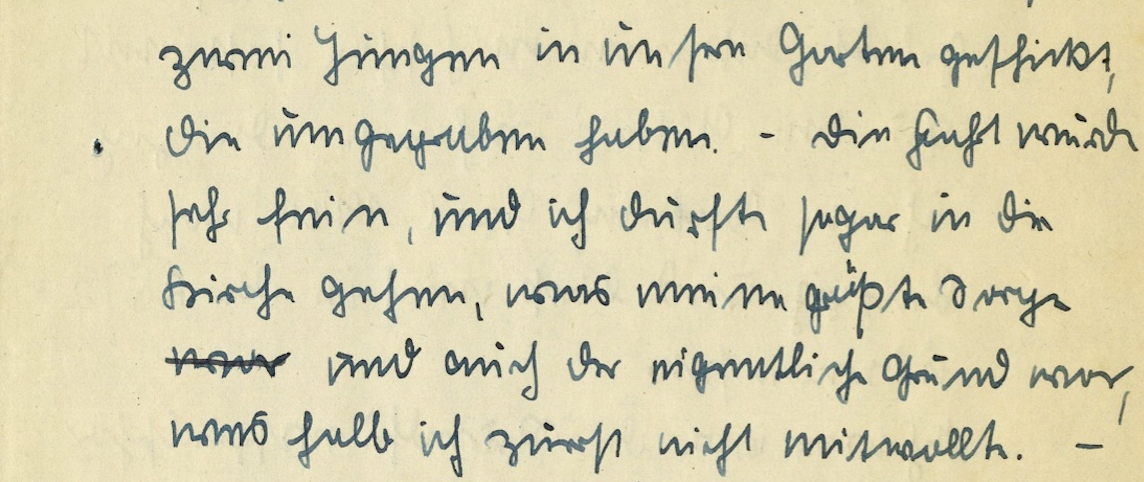 zwei Jungen in unsern Garten geschickt,
die umgegraben haben. - Die Fahrt wurde
sehr fein, und ich durfte sogar in die
Kirche gehen, was meine größte Sorge
war und auch der eigentliche Grund war,
weshalb ich zuerst nicht mitwollte. -